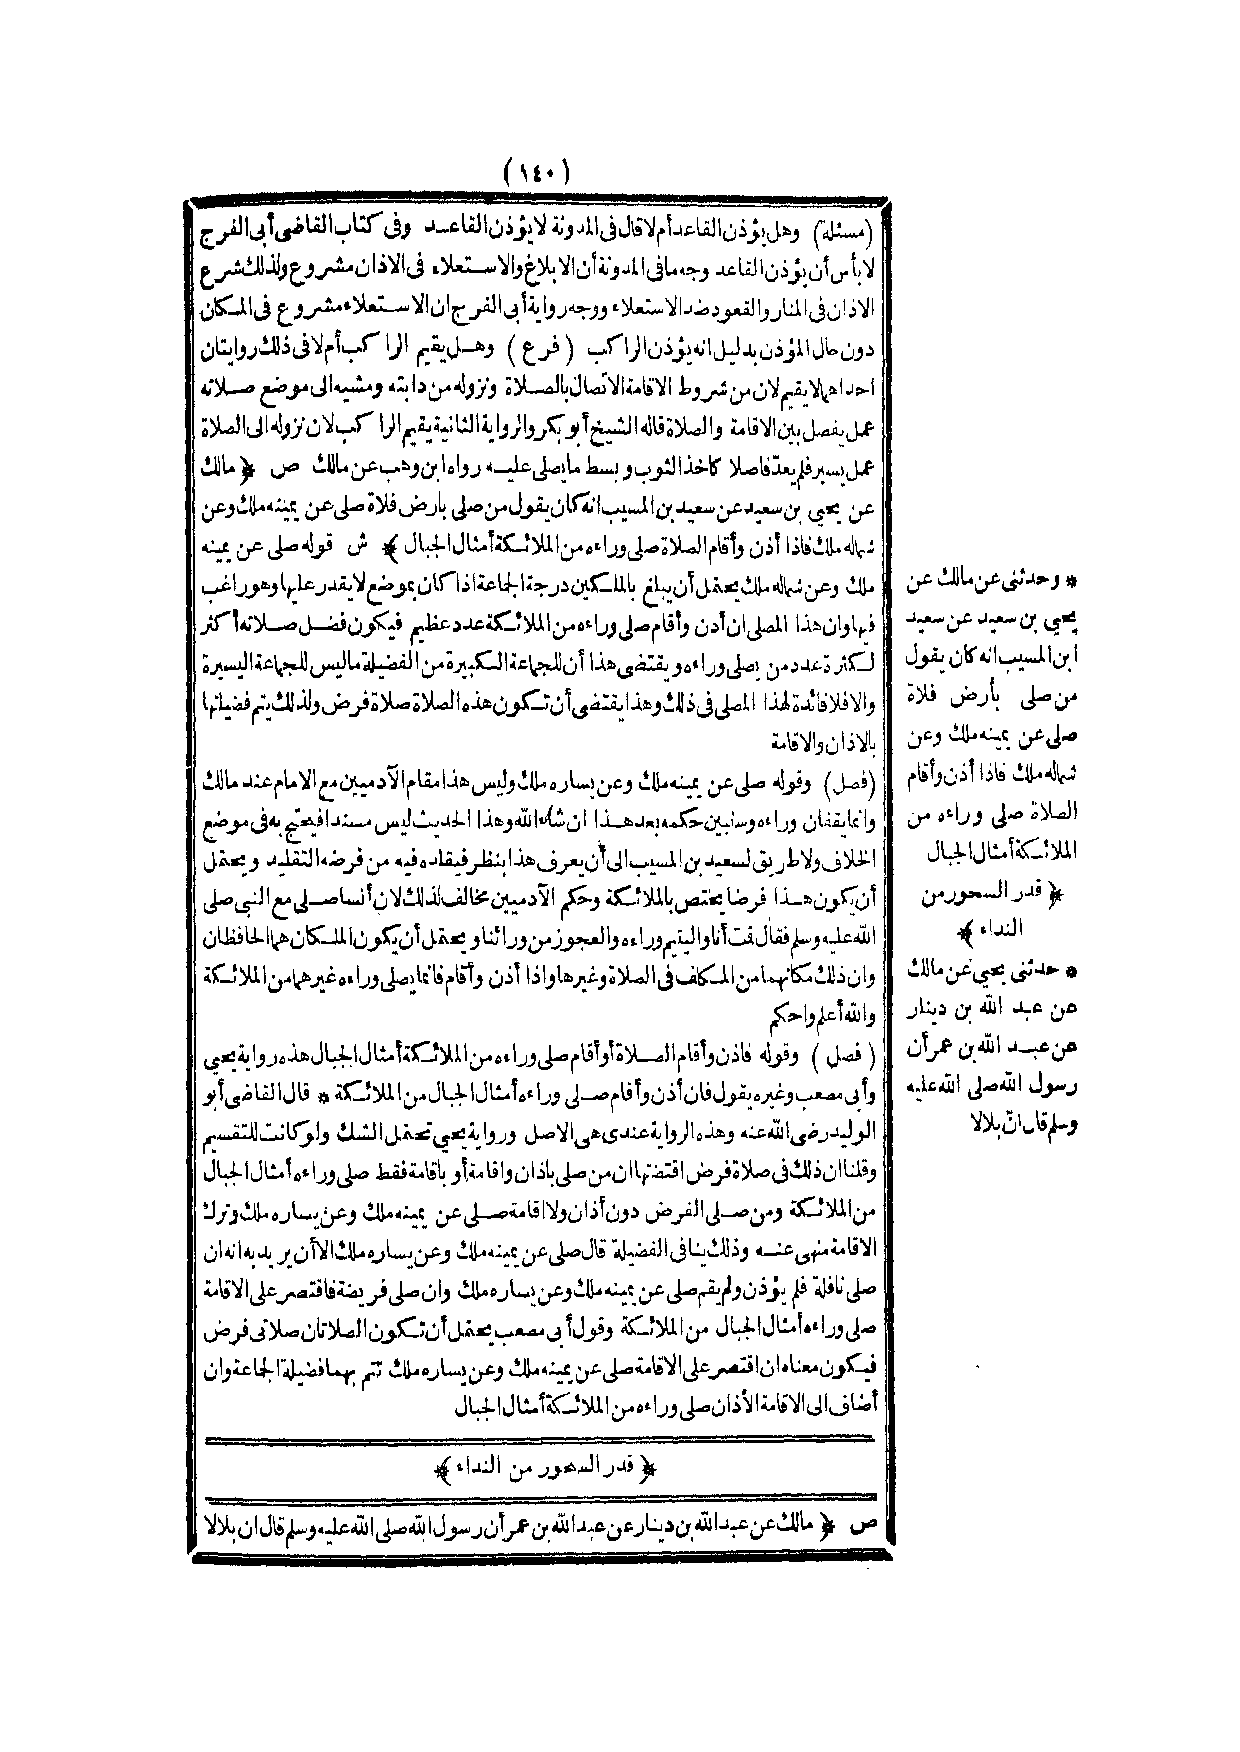 (١٤٠)
(مسئلة) وهل يؤذن القاعد أم لا قال فى المدونة لا يؤذن القاعد وفى كتاب القاضى أبى الفرج
لا بأس أن يؤذن القاعد وجه ما فى المدونة أن الابلاغ والاستعلاء فى الاذان مشروع ولذلك شرع
الاذان فى المنار والقعود ضد الاستعلاء ووجه رواية أبى الفرج ان الاستعلاء مشروع فى المكان
دون حال المؤذن بدليل انه يؤذن الراكب (فرع) وهل يقيم الراكب أم لا فى ذلك روايتان
احداهما لا يقيم لان من شروط الاقامة الاتصال بالصلاة ونزوله من دابته ومشيه الى موضع صلاته
عمل يفصل بين الاقامة والصلاة قاله الشيخ أبو بكر والرواية الثانية يقيم الراكب لان نزوله الى الصلاة
عمل يسير فلم يعد فاصلا كاخذ الثوب وبسط ما يصلى عليه رواه ابن وهب عن مالك ص ﴿ مالك
عن يحيى بن سعيد عن سعيد بن المسيب انه كان يقول من صلى بأرض فلاة صلى عن يمينه ملك وعن
شماله ملك فاذا أذن وأقام الصلاة صلى وراءه من الملائكة أمثال الجبال ﴾ ش قوله صلى عن يمينه
ملك وعن شماله ملك يحتمل أن يبلغ بالملكين درجة الجماعة اذا كان بموضع لا يقدر عليها وهو راغب
فيها وان هذا المصلى ان أذن وأقام صلى وراءه من الملائكة عدد عظيم فيكون فضل صلاته أكثر
لكثرة عدد من يصلى وراءه ويقتضى هذا أن للجماعة الكبيرة من الفضيلة ما ليس للجماعة اليسيرة
والا فلا فائدة لهذا المصلى فى ذلك وهذا يقتضى أن تكون هذه الصلاة صلاة فرض ولذلك يتم فضيلتها
بالاذان والاقامة
(فصل) وقوله صلى عن يمينه ملك وعن يساره ملك وليس هذا مقام الآدميين مع الامام عند مالك
وانما يقفان وراءه وسأبين حكمه بعد هذا ان شاء الله وهذا الحديث ليس مسندا فيحتج به فى موضع
الخلاف ولا طريق لسعيد بن المسيب الى أن يعرف هذا بنظر فيقلده فيه من فرضه التقليد ويحتمل
أن يكون هذا فرضا يختص بالملائكة وحكم الآدميين مخالف لذلك لان أنسا صلى مع النبى صلى
الله عليه وسلم فقال قمت أنا واليتيم وراءه والعجوز من ورائنا ويحتمل أن يكون الملكان هما الحافظان
وان ذلك مكانهما من المكلف فى الصلاة وغيرها واذا أذن وأقام فانما يصلى وراءه غيرهما من الملائكة
والله أعلم واحكم
(فصل) وقوله فاذن وأقام الصلاة أو أقام صلى وراءه من الملائكة أمثال الجبال هذه رواية يحيى
وأبى مصعب وغيره يقول فان أذن وأقام صلى وراءه أمثال الجبال من الملائكة * قال القاضى أبو
الوليد رضى الله عنه وهذه الرواية عندى هى الاصل ورواية يحيى تحتمل الشك ولو كانت للتقسيم
وقلنا ان ذلك فى صلاة فرض اقتضتها ان من صلى باذان واقامة أو باقامة فقط صلى وراءه أمثال الجبال
من الملائكة ومن صلى الفرض دون أذان ولا اقامة صلى عن يمينه ملك وعن يساره ملك وترك
الاقامة منهى عنه وذلك ينافى الفضيلة قال صلى عن يمينه ملك وعن يساره ملك الا أن يريد به انه ان
صلى نافلة فلم يؤذن ولم يقم صلى عن يمينه ملك وعن يساره ملك وان صلى فريضة فاقتصر على الاقامة
صلى وراءه أمثال الجبال من الملائكة وقول أبى مصعب يحتمل أن تكون الصلاتان صلاتى فرض
فيكون معناه ان اقتصر على الاقامة صلى عن يمينه ملك وعن يساره ملك تتم بهما فضيلة الجماعة وان
أضاف الى الاقامة الأذان صلى وراءه من الملائكة أمثال الجبال
﴿ قدر السحور من النداء ﴾
ص ﴿ مالك عن عبد الله بن دينار عن عبد الله بن عمر أن رسول الله صلى الله عليه وسلم قال ان بلالا
* وحدثنى عن مالك عن
يحيى بن سعيد عن سعيد
ابن المسيب انه كان يقول
من صلى بأرض فلاة
صلى عن يمينه ملك وعن
شماله ملك فاذا أذن وأقام
الصلاة صلى وراءه من
الملائكة أمثال الجبال
﴿ قدر السحور من
النداء ﴾
* حدثنى يحيى عن مالك
عن عبد الله بن دينار
عن عبد الله بن عمر أن
رسول الله صلى الله عليه
وسلم قال انّ بلالا